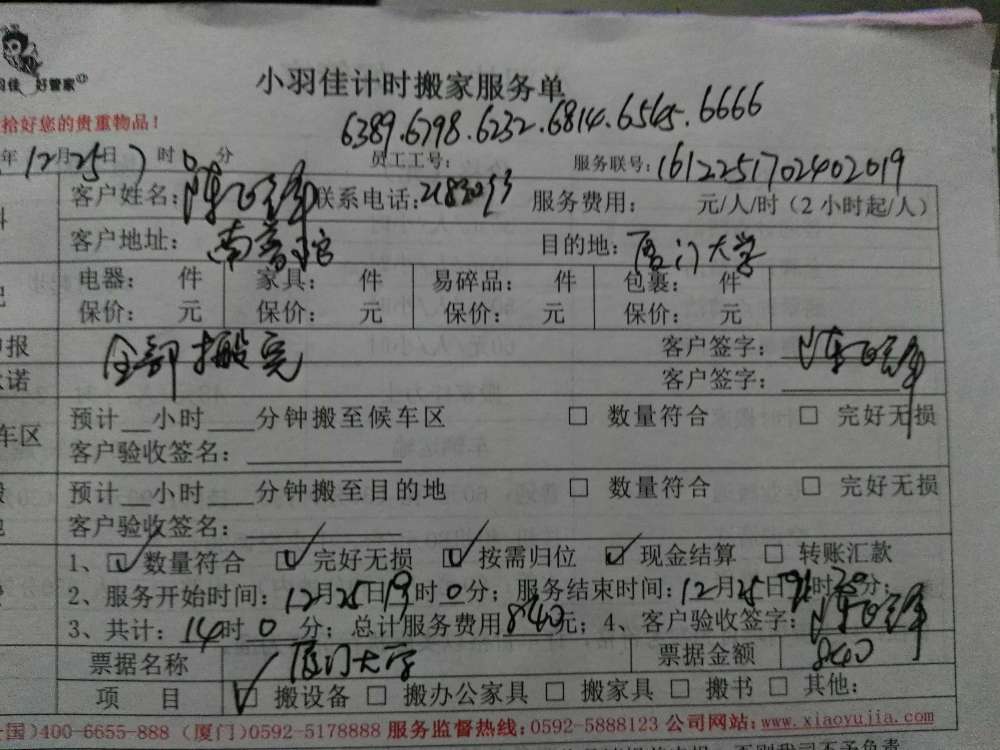 好管家
小羽佳计时搬家服务单
拾好您的贵重物品！
6389.6798.6232.6814.6565.6666
年12月25日7时0分 员工工号： 服务联号：1612251702402019
客户姓名：陈 联系电话： 服务费用： 元/人/时（2小时起/人）
客户地址：南普 目的地：厦门大学
电器： 件 家具： 件 易碎品： 件 包裹： 件
保价： 元 保价： 元 保价： 元 保价： 元
申报 全部搬完 客户签字：陈
承诺 客户签字：
预计__小时___分钟搬至候车区 □ 数量符合 □ 完好无损
车区
客户验收签名：
预计__小时___分钟搬至目的地 □ 数量符合 □ 完好无损
客户验收签名：
1、☑数量符合 ☑完好无损 ☑按需归位 ☑现金结算 □ 转账汇款
2、服务开始时间：12月25日19时0分；服务结束时间：12月25日 时30分；
3、共计：14时0分；总计服务费用840元；4、客户验收签字：陈
票据名称 厦门大学 票据金额 840
项 目 ☑搬设备 □ 搬办公家具 □ 搬家具 □ 搬书 □ 其他：
国)400-6655-888 (厦门)0592-5178888 服务监督热线：0592-5888123 公司网站：www.xiaoyujia.com